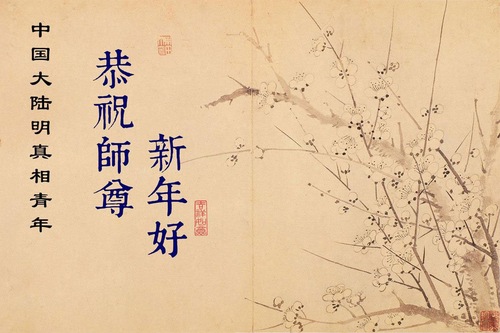 恭祝師尊
新年好
中国大陆明真相青年
吉祥如意